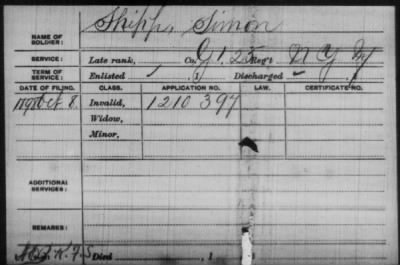 NAME OF SOLDIER: Shipp, Simon
SERVICE: Late rank, Co. G, 125 Reg't N Y
TERM OF SERVICE: Enlisted , 1 Discharged , 1
DATE OF FILING. CLASS. APPLICATION NO. LAW. CERTIFICATE NO.
Oct. 8. Invalid, 1210 397
Widow,
Minor,
ADDITIONAL SERVICES:
REMARKS:
Died , 1